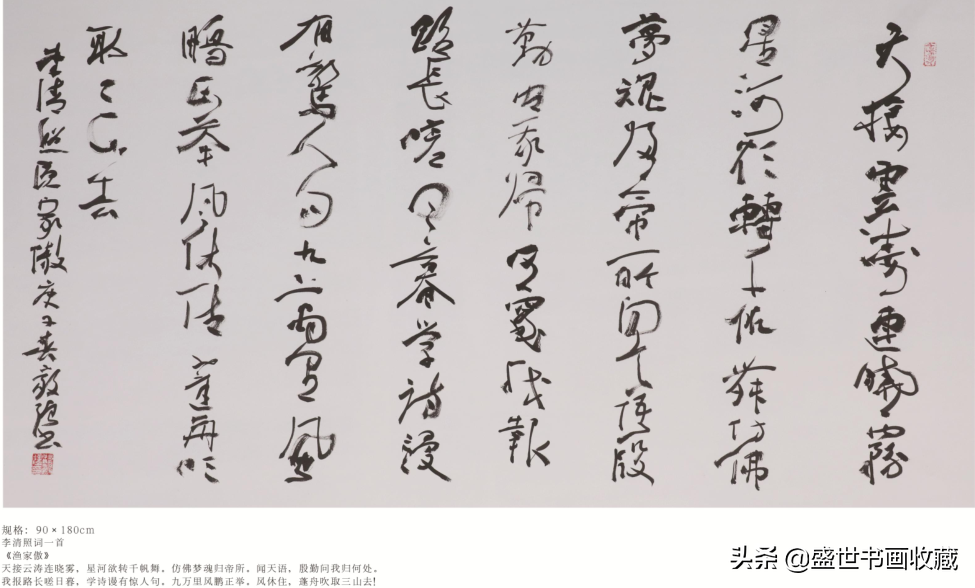 天接雲濤連曉霧
星河欲轉千帆舞仿佛
夢魂歸帝所聞天語殷
勤問我歸何處我報
路長嗟日暮学詩漫
有驚人句九萬里風
鵬正舉風休住蓬舟吹
取三山去
李清照漁家傲庚子春
规格: 90×180cm
李清照词一首
《渔家傲》
天接云涛连晓雾，星河欲转千帆舞。仿佛梦魂归帝所。闻天语，殷勤问我归何处。
我报路长嗟日暮，学诗谩有惊人句。九万里风鹏正举。风休住，蓬舟吹取三山去!
头条 @盛世书画收藏